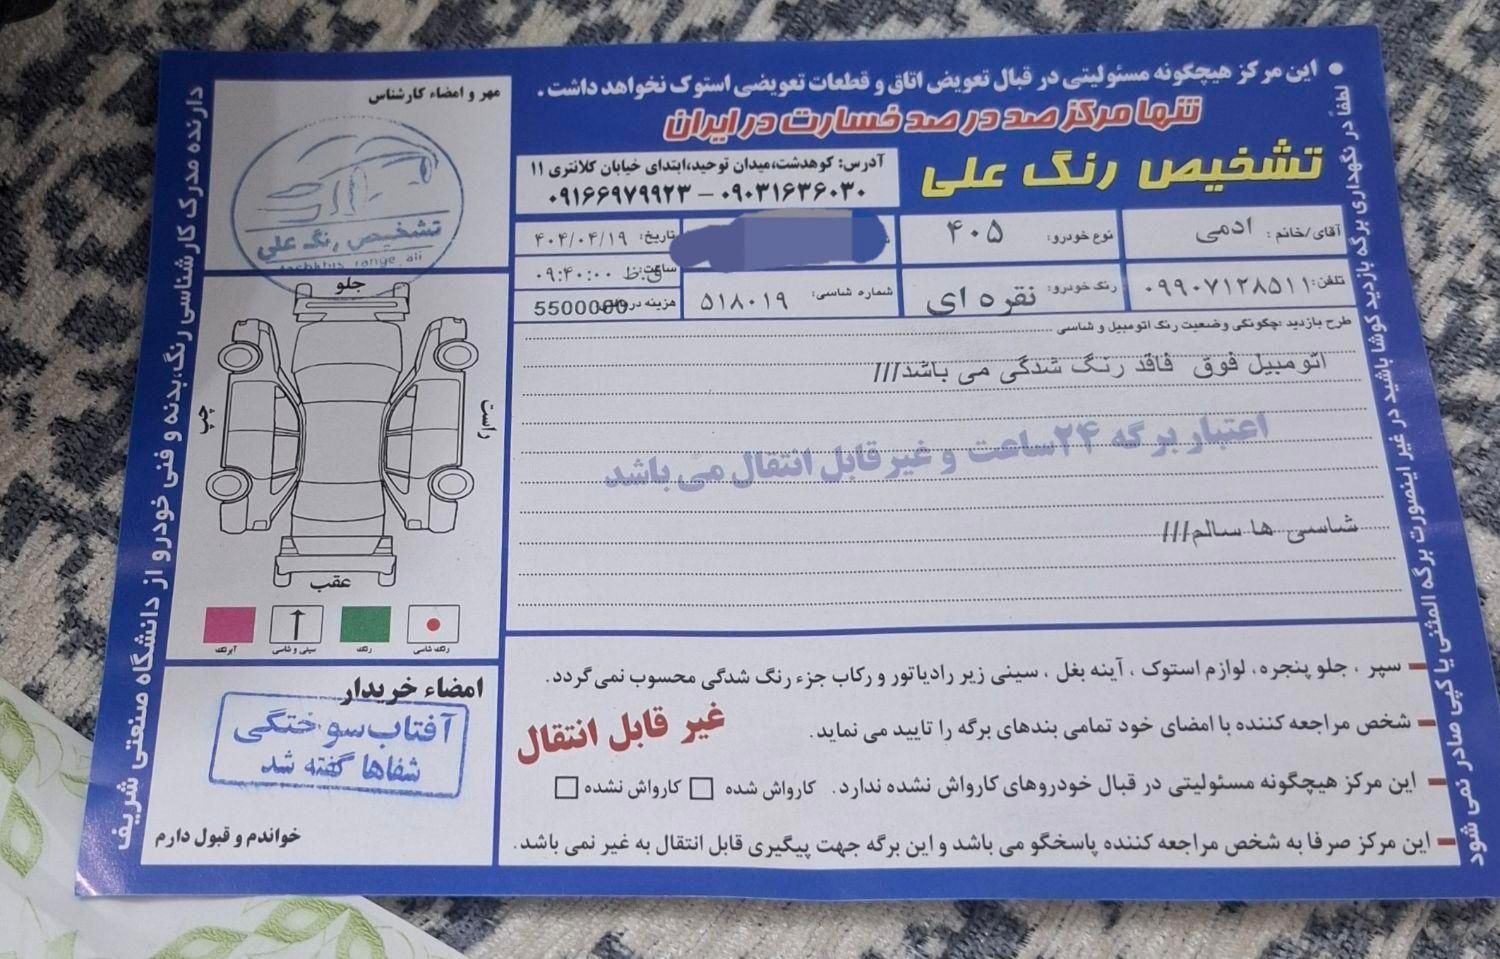 این مرکز هیچگونه مسئولیتی در قبال تعویض اتاق و قطعات تعویضی استوک نخواهد داشت.
تنها مرکز صد در صد خسارت در ایران
تشخیص رنگ علی
آدرس: کوهدشت،میدان توحید،ابتدای خیابان کلانتری ۱۱
۰۹۰۳۱۶۳۶۰۳۰ – ۰۹۱۶۶۹۷۹۹۲۳
آقای/خانم : ادمی
نوع خودرو: ۴۰۵
تاریخ: ۴۰۴/۰۴/۱۹
تلفن: ۰۹۹۰۷۱۲۸۵۱۱
رنگ خودرو: نقره ای
شماره شاسی: ۵۱۸۰۱۹
ساعت: ۰۹:۴۰:۰۰ ق.ظ
هزینه 5500000
طرح بازدید :چگونگی وضعیت رنگ اتومبیل و شاسی
اتومبیل فوق فاقد رنگ شدگی می باشد///
اعتبار برگه ۲۴ساعت و غیر قابل انتقال می باشد
شاسی ها سالم///
سپر ، جلو پنجره، لوازم استوک ، آینه بغل ، سینی زیر رادیاتور و رکاب جزء رنگ شدگی محسوب نمی گردد.
شخص مراجعه کننده با امضای خود تمامی بندهای برگه را تایید می نماید.
غیر قابل انتقال
این مرکز هیچگونه مسئولیتی در قبال خودروهای کارواش نشده ندارد. کارواش شده کارواش نشده
این مرکز صرفا به شخص مراجعه کننده پاسخگو می باشد و این برگه جهت پیگیری قابل انتقال به غیر نمی باشد.
مهر و امضاء کارشناس
تشخیص رنگ علی
tashkhis_range_ali
جلو
چپ
راست
عقب
رنگ شاسی
رنگ
سینی و شاسی
آبرنگ
امضاء خریدار
آفتاب سوختگی
شفاها گفته شد
خواندم و قبول دارم
دارنده مدرک کارشناسی رنگ،بدنه و فنی خودرو از دانشگاه صنعتی شریف
لطفاً در نگهداری برگه بازدید کوشا باشید در غیر اینصورت برگه المثنی یا کپی صادر نمی شود